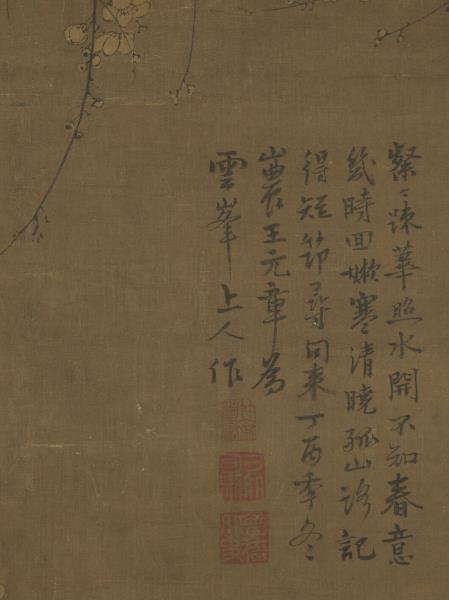 粲〻疎華照水開不知春意
幾時回嫰寒清曉孤山路記
得短筇尋句来丁酉季冬
山農王元章為
雲峯上人作